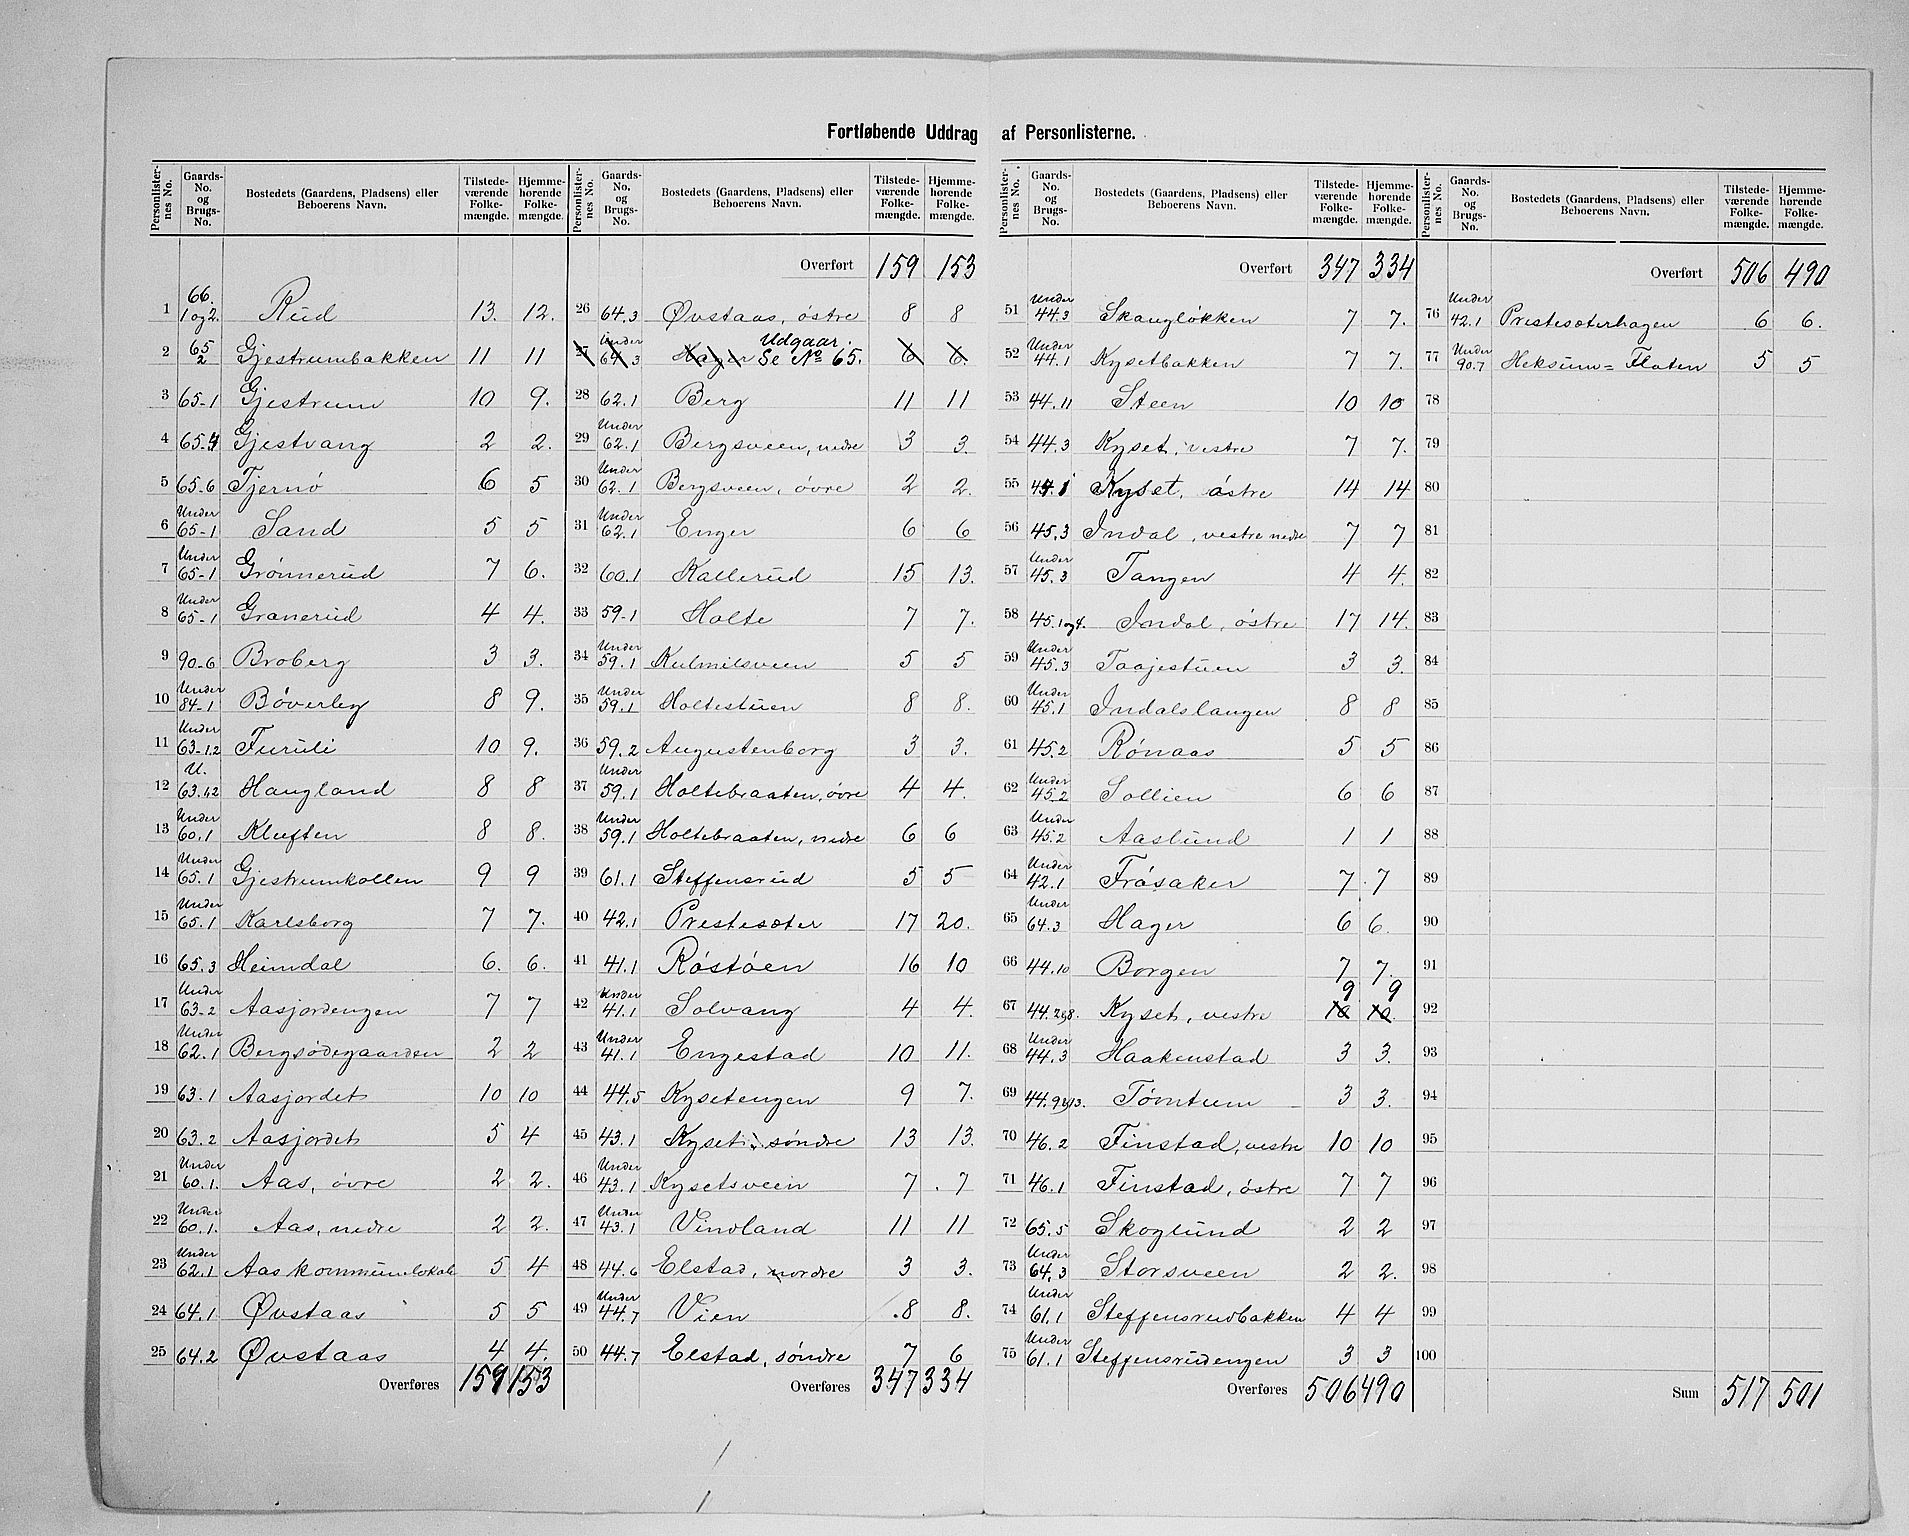 Fortløbende Uddrag af Personlisterne.
Personlisternes No. Gaards-No. og Brugs-No. Bostedets (Gaardens, Pladsens) eller Beboerens Navn. Tilstedeværende Folkemængde. Hjemmehørende Folkemængde.
1 66. 1 og 2. Rud 13. 12.
2 65 2 Gjestrumbakken 11 11
3 65-1 Gjestrum 10 9.
4 65.4 Gjestvang 2 2.
5 65-6 Tjernø 6 5
6 Under 65-1 Sand 5 5
7 Under 65-1 Grønnerud 7 6.
8 Under 65-1 Granerud 4 4.
9 90-6 Broberg 3 3.
10 Under 84-1 Bøverley 8 9.
11 Under 63-1.2 Furuli 10 9.
12 U. 63.1.2 Haugland 8 8
13 Under 60.1 Kluften 8 8.
14 Under 65.1 Gjestrumkollen 9 9
15 Under 65.1 Karlsborg 7 7.
16 65.3 Heimdal 6. 6.
17 Under 63-2 Aasjordengen 7 7
18 Under 62.1 Bergsødegaarden 2 2
19 63.1 Aasjordet 10 10
20 63.2 Aasjordet 5 4
21 Under 60.1. Aas, øvre 2 2.
22 Under 60.1. Aas, nedre 2 2.
23 Under 62.1 Aas kommunelokale 5 4
24 64.1 Øvstaas 5 5
25 64.2 Øvstaas 4 4.
Overføres 159 153
Personlisternes No. Gaards-No. og Brugs-No. Bostedets (Gaardens, Pladsens) eller Beboerens Navn. Tilstedeværende Folkemængde. Hjemmehørende Folkemængde.
Overført 159 153
26 64.3 Øvstaas, østre 8 8
27 Under 64.3 Hager Udgaar. Se No 65. 6 6.
28 62.1 Berg 11 11
29 Under 62.1 Bergsveen, nedre 3 3.
30 Under 62.1 Bergsveen, øvre 2 2.
31 Under 62.1 Enger 6 6
32 60.1 Kallerud 15 13.
33 59-1 Holte 7 7.
34 Under 59.1 Kulmilsveen 5 5
35 Under 59.1 Holtestuen 8 8.
36 59.2 Augustenborg 3 3.
37 Under 59.1 Holtebraaten, øvre 4 4.
38 Under 59.1 Holtebraaten, nedre 6 6
39 61.1 Steffensrud 5 5
40 42.1 Prestesæter 17 20.
41 41.1 Røstøen 16 10
42 Under 41.1 Solvang 4 4.
43 Under 41.1 Engestad 10 11.
44 44.5 Kysetengen 9 7.
45 43.1 Kyset, søndre 13 13.
46 Under 43.1 Kysetsveen 7 7
47 Under 43.1 Vindland 11 11
48 44.6 Elstad, nordre 3 3.
49 Under 44.7 Vien 8 8.
50 44.7 Elstad, søndre 7 6
Overføres 347 334
Personlisternes No. Gaards-No. og Brugs-No. Bostedets (Gaardens, Pladsens) eller Beboerens Navn. Tilstedeværende Folkemængde. Hjemmehørende Folkemængde.
Overført 347 334
51 Under 44.3 Skaugløkken 7 7.
52 Under 44.1 Kysetbakken 7 7.
53 44.11 Steen 10 10
54 44.3 Kyset, vestre 7 7.
55 44.1 Kyset, østre 14 14
56 45.3 Indal, vestre nedre 7 7
57 Under 45.3 Tangen 4 4.
58 45.1 og 4. Indal, østre 17 14.
59 Under 45.3 Taajestuen 3 3.
60 Under 45.1 Indalslangen 8 8
61 45.2 Rønaas 5 5
62 Under 45-2 Sollien 6 6
63 Under 45.2 Aaslund 1 1
64 Under 42.1 Frøsaker 7 7
65 Under 64.3 Hager 6 6.
66 44.10 Borgen 7 7.
67 44.2 og 8. Kyset, vestre 10 10. 9 9
68 Under 44.3 Haakenstad 3 3.
69 44.9 og 13. Tømtum 3 3.
70 46.2 Finstad, vestre 10 10
71 46.1 Finstad, østre 7 7
72 65.5 Skoglund 2 2
73 Under 64.3 Storsveen 2 2.
74 Under 61.1 Steffensrudbakken 4 4
75 Under 61.1 Steffensrudengen 3 3
Overføres 506 490
Personlisternes No. Gaards-No. og Brugs-No. Bostedets (Gaardens, Pladsens) eller Beboerens Navn. Tilstedeværende Folkemængde. Hjemmehørende Folkemængde.
Overført 506 490
76 Under 42.1 Prestesæterhagen 6 6.
77 Under 90.7 Heksum=Flaten 5 5
78
79
80
81
82
83
84
85
86
87
88
89
90
91
92
93
94
95
96
97
98
99
100
Sum 517 501